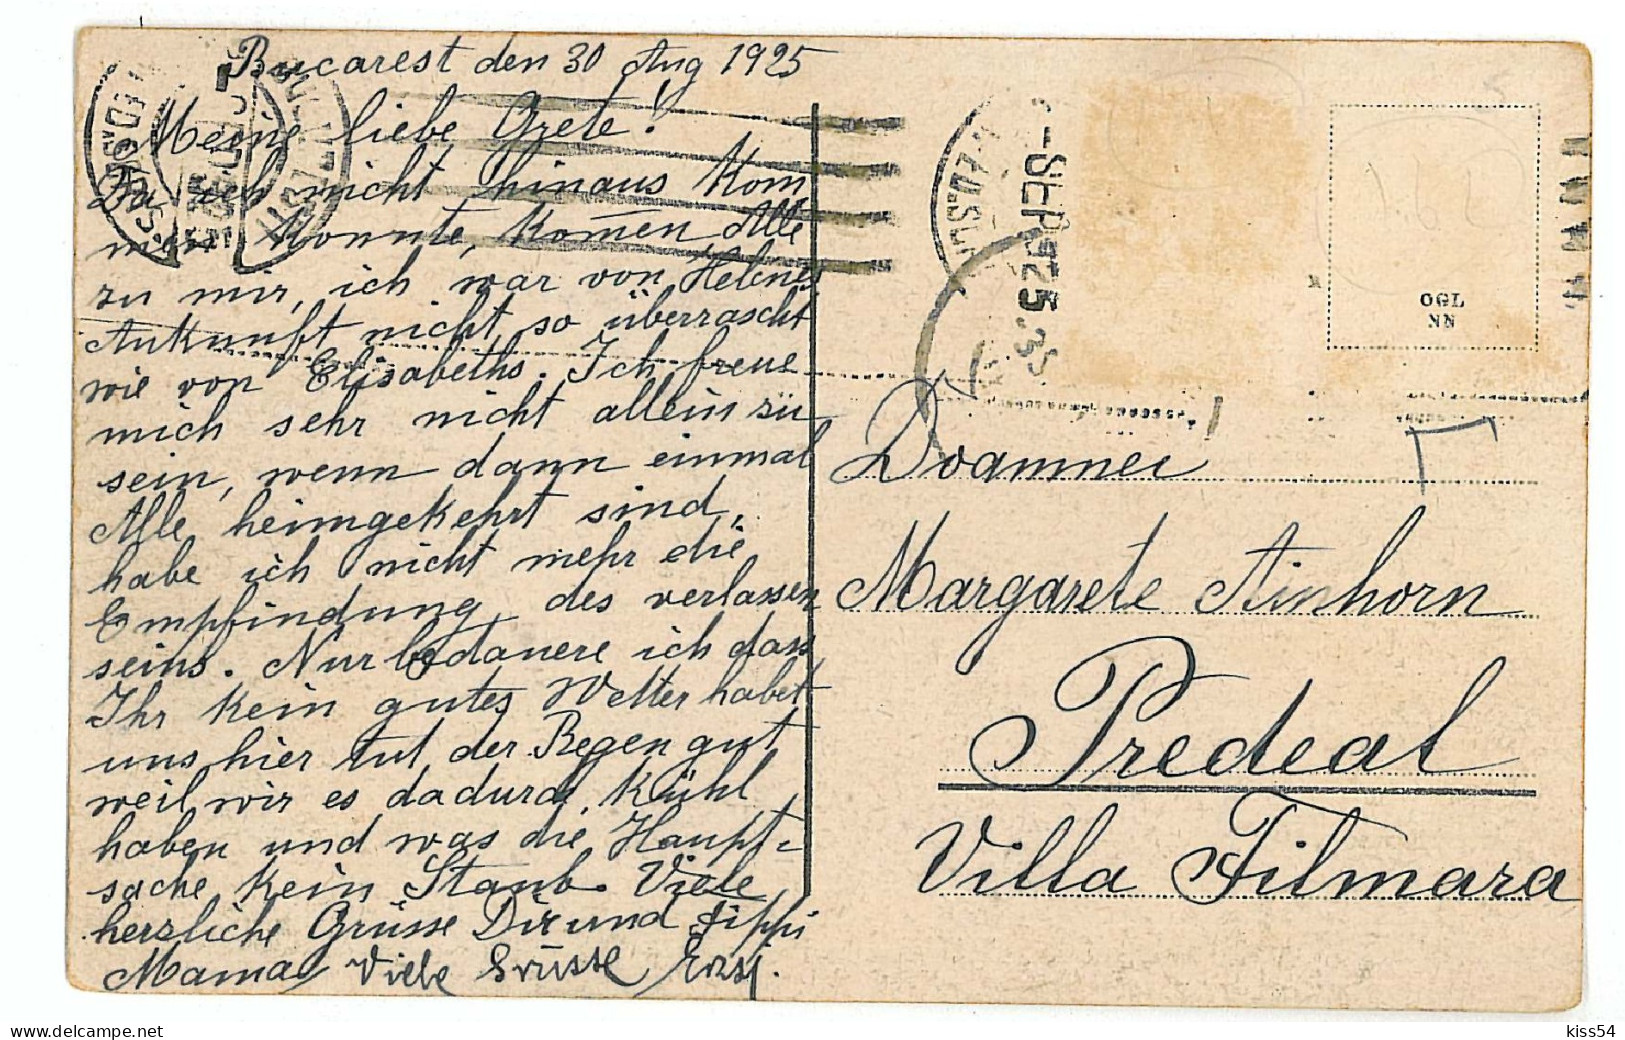 Bucarest den 30 Aug 1925
Meine liebe Grete!
Da ich nicht hinaus kom
men konnte, komen Alle
zu mir, ich war von Helenes
Ankunft nicht so überrascht
wie von Elisabeths. Ich freue
mich sehr nicht allein zu
sein, wenn dann einmal
Alle heimgekehrt sind,
habe ich nicht mehr die
Empfindung des verlassen
seins. Nur bedauere ich dass
Ihr kein gutes Wetter habet
uns hier tut der Regen gut
weil wir es dadurch kühl
haben und was die Haupt-
sache kein Staub. Viele
herzliche Grüsse Dir und
Mama Viele Grüsse
SEP 925
OGL
NN
Doamnei
Margarete Ainhorn
Predeal
Villa Filmara
kiss54